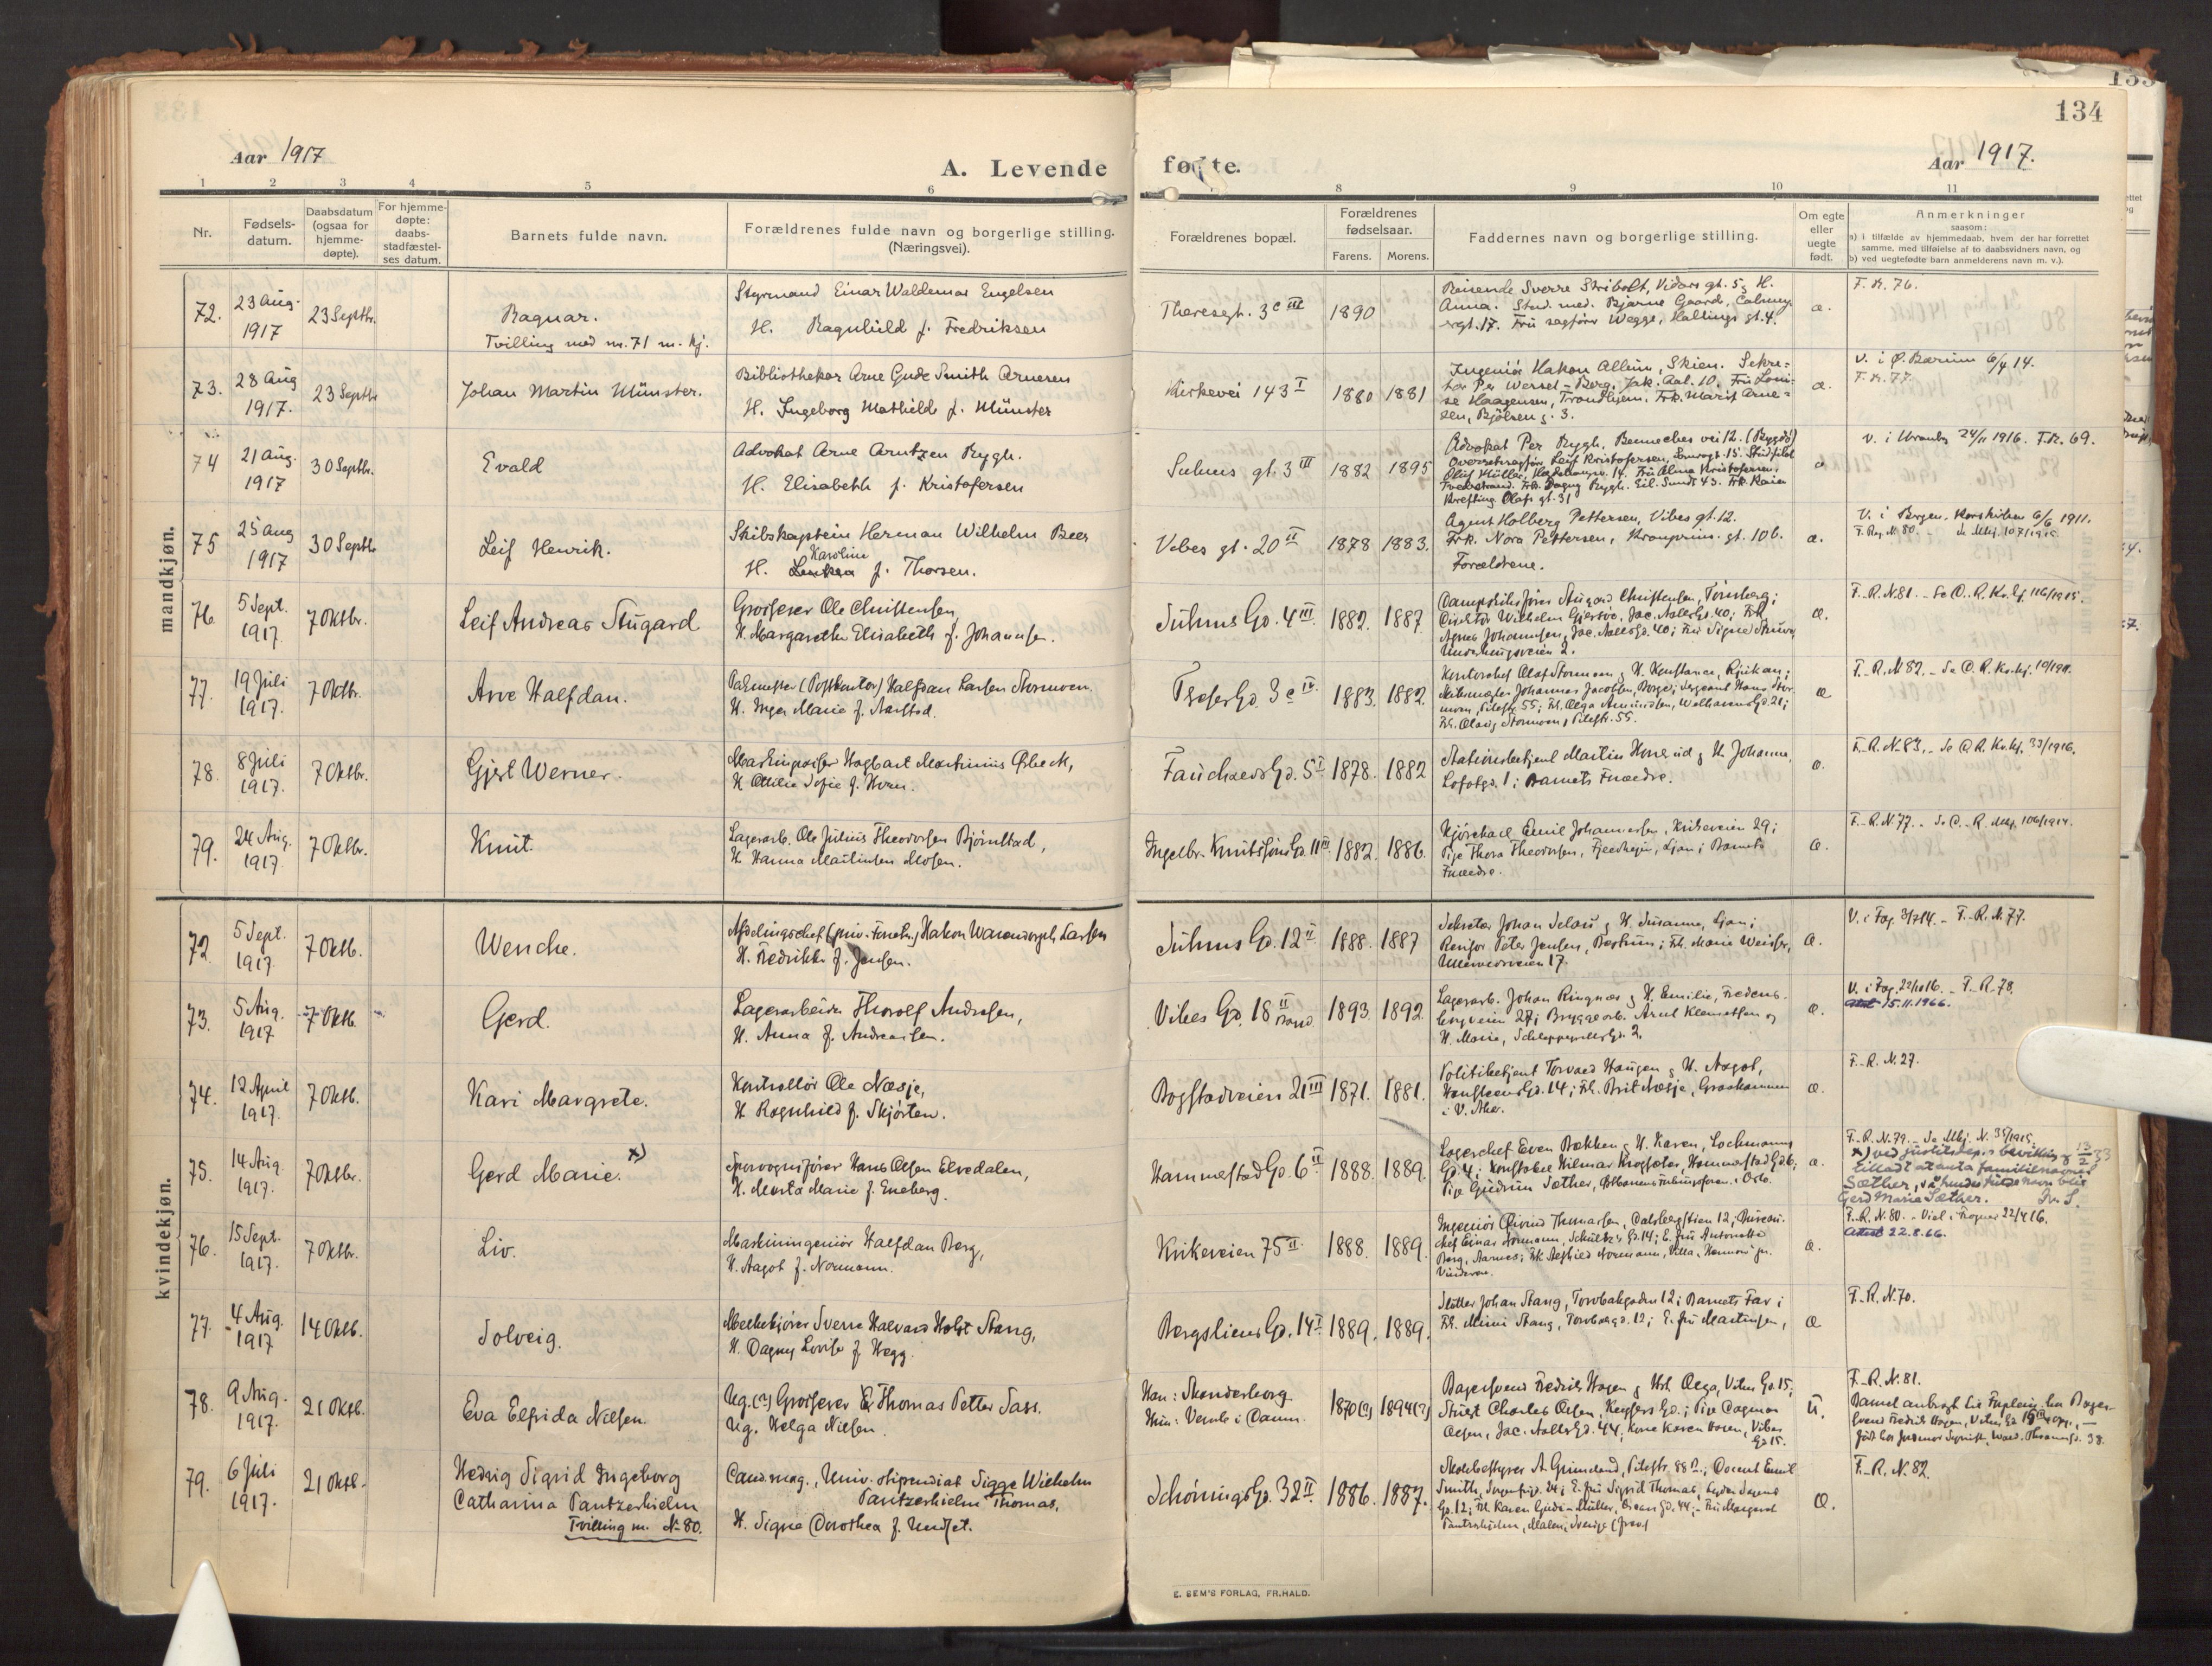 134
Aar 1917
A. Levende
fødte.
Aar 1917.
1 2 3 4 5 6
8 9 10 11
Nr.
Fødsels-
datum.
Daabsdatum
(ogsaa for
hjemme-
døpte).
For hjemme-
døpte:
daabs-
stadfæstel-
ses datum.
Barnets fulde navn.
Forældrenes fulde navn og borgerlige stilling.
(Næringsvei).
Forældrenes bopæl.
Forældrenes
fødselsaar.
Farens. Morens.
Faddernes navn og borgerlige stilling.
Om egte
eller
uegte
født.
Anmerkninger
saasom:
a) i tilfælde av hjemmedaab, hvem der har forrettet
samme, med tilføielse af to daabsvidners navn, og
b) ved uegtefødte barn anmelderens navn m. v.).
mandkjøn.
72.
23 Aug.
1917
23 Septbr.
Ragnar.
Tvilling med nr. 71 m. kj.
Styrmand Einar Waldemar Engelsen
H. Ragnhild f. Fredriksen
Theresegt. 3c III
1890
Reisende Sverre Stribolt, Vidars gt. 5, H.
Anna. Stud. med. Bjarne Gaard,
Frü sagfører Wegge, Hallings gt. 4.
æ.
F. R. 76.
73.
28 Aug
1917.
23 Septbr
Johan Martin Münster.
Bibliothekar Arne Gude Smith Arnesen
H. Ingeborg Mathilde f. Münster
Kirkevei 143 I
1880 1881
Ingeniør Hakon Allum, Skien. Sekre-
tær Per Wessel-Berg, Jak. Aal. 10. Frü Loui-
se Haagensen, Trondhjem. Frk. Marit Arne-
sen, Bjølsen g. 3.
æ.
V. i Ø. Bærum 6/4 14.
F. R. 77.
74
21 Aug.
1917
30 Septbr.
Evald
Advokat Arne Arntzen Rygh.
H. Elisabeth f. Kristofersen
Suhms gt. 3 III
1882 1895
Advokat Per Rygh, Benneches vei 12. (Bygdø)
Overretssagfør. Leif Kristofersen,
Frü Alma Kristofersen,
Fredrikstrand. Frk. Dagny Rygh. Eil. Sundt 43. Frk. Kaia
Krefting Olafs gt. 31
V. i Uranbg 24/11 1916. F.R. 69.
75
25 Aug
1917
30 Septb.
Leif Henrik.
Skibskaptein Herman Wilhelm Beer
Karoline
H. f. Thorsen.
Vibes gt. 20 II
1878 1883.
Agent Holberg Pettersen, Vibes gt. 12.
Frk. Nora Pettersen, Kronprins. gt. 10 b.
Forældrene.
æ.
V. i Bergen, Korskirken 6/6 1911.
F. Reg. N. 80.
76
5 Sept.
1917.
7 Oktbr.
Leif Andreas Stügard
Grosserer Ole Christensen,
H. Margarethe Elisabeth f. Johannsen.
Sühms Gd. 4 III
1882. 1887
Dampskibsfører Stügard Christensen, Tønsberg;
Direktør Wilhelm Gjersøe, Jac. Aalls Gd. 40; Frk.
Agnes Johannsen, Jac. Aalls Gd. 40; Frü Signe
Underhaugsveien 2.
æ.
F.-R. N. 81. - Se D. R. Kv. kj. 116/1915.
77.
19 Juli
1917.
7 Oktbr.
Arve Halfdan.
Pakmester (Postkontor) Halfdan Larsen Stormoen.
H. Inga Marie f. Aarstad.
Theres Gd. 3c IV
1883. 1882.
Kontorchef Olaf Stormoen & H. Konstance, Rjükan;
Johannes Jacobsen, Borge; Sergeant Hans Stor-
moen, Pilestr. 55; Frk. Olga Amündsen, Welhavens Gd. 21;
Frk. Olaug Stormoen, Pilestr. 55.
æ
F.-R. N. 82. - Se D. R. Kv. kj.
78.
8 Jüli
1917.
7 Oktbr.
Gjert Werner.
Maskinpasser Hagbart Martinius Ørbeck,
H. Ottilie Sofie f. Horn.
Faüchalds Gd. 5 I
1878. 1882
Stationsbetjent Martin & H. Johanne,
Lofotgd. 1; Barnets Forældre.
æ.
F.-R. N. 83. - Se D. R. Kv. kj. 33/1916.
79.
24 Aüg.
1917.
7 Oktbr.
Knüt.
Lagerarb. Ole Jülius Theodorsen Bjørnstad,
H. Hanna Martinsen Mosen.
Ingelbr. Knütssøns Gd. 11 III
1882. 1886.
Emil Johannessen, Kirkeveien 29;
Pige Thora Theodorsen, Fjeldhøgen, Ljan; Barnets
Forældre.
æ.
F.-R. N. 77. - Se D.-R. Mkj. 106/1914.
kvindekjøn.
72.
5 Sept.
1917.
7 Oktb.
Wenche.
Afdelingschef (priv. Forretn.) Hakon Warendorph Larsen
H. Fredrikke f. Jensen.
Sühms Gd. 12 II
1888. 1887
Sekretær Johan Selaü & H. Süsanne, Ljan;
Peter Jensen, Bærüm; Frk. Marie
Ullevoldsveien 17.
æ.
V. i Fag. 3/7 14. - F.-R. N. 77.
73.
5 Aüg.
1917
7 Oktb.
Gerd.
Lagerarbeider Thorolf Andresen,
H. Anna f. Andreassen.
Vibes Gd. 18 II
1893. 1892.
Lagerarb. Johan Ringnæs & H. Emilie, Fredens-
borgveien 27; Bryggearb. Arnt Klemetsen og
H. Marie, Schleppegrells Gd. 2.
æ.
V. i Fag. 22/10 16. - F.-R. 78.
Attest 15.11.1966.
74.
12 April
1917.
7 Oktb.
Kari Margrete.
Kontrollør Ole Næsje,
H. Ragnhild f. Skjørten.
Bogstadveien 21 III
1871. 1881.
Politibetjent Torvald Haügen & H. Aagot,
Hansteens Gd. 14; Frk. Brit Næsje, Graakammen
i V. Aker.
æ.
F.-R. N. 27.
75.
14 Aüg.
1917.
7 Oktbr.
Gerd Marie. x)
Sporvognsfører Hans Olsen Elvedalen,
H. Marta Marie f. Eneberg.
Hammerstad Gd. 6 II
1888. 1889.
Lagerchef Even Bækken & H. Karen, Lochmanns
Gd. 4; Konstabel Hilmar Krogsæter, Hammerstad Gd. 6;
Pige Güdrün Sæther,
æ.
F.-R. N. 79. - Se Mkj. N. 35/1915.
x) ved justitsdep.s bevilling af 13/2 33
tillatt at anta familienavnet
Sæther, så hendes fulde navn blir
Gerd Marie Sæther.
76.
15 Sept.
1917.
7 Oktbr.
Liv.
Maskiningeniør Halfdan Berg,
H. Aagot f. Normann.
Kirkeveien 75 II
1888. 1889.
Ingeniør Øivind Thomassen, Calsbergstien 12; Büreau-
chef Einar Normann, Schültz's Gd. 14; E. frü Antonette
Berg, Aarnes; Frk. Alfhild Normann, Villa
Vinderen.
æ.
F.-R. N. 80. - Viel. i Fragner 22/4 16.
Attest 22.8.66.
77.
4 Aüg.
1917
14 Oktb.
Solveig.
Melkekjører Sverre Halvard Holst Stang,
H. Dagny Lovise f. Hegg.
Bergsliens Gd. 14 I
1889. 1889.
Slatter Johan Stang, Torvbakgaden 12; Barnets Far;
Frk. Mimi Stang, Torvbakgd. 12; E. frü Martinsen,
æ
F.-R. N. 70.
78.
9 Aüg.
1917.
21 Oktb.
Eva Elfrida Nilsen.
Ug. (?) Grosserer Thomas Petter Sass.
Ug. Helga Nilsen
Han: Skanderborg
Hün: Vemb i Danm.
1870 (?) 1894 (?)
Bagersvend Fredrik Hagen & Hst. Olga, Vibes Gd. 15;
Charles Olsen, Keysers Gd.; Pige Dagmar
Olsen, Jac. Aalls Gd. 44, Kone Karen Hagen, Vibes
Gd 15.
ü.
F.-R. N. 81.
Barnet anbragt til Forpleining hos Bager-
svend Fredrik Hagen, Vibes Gd. 15
79.
6 Jüli
1917.
21 Oktb.
Hedvig Sigrid Ingeborg
Catharina Pantzerhielm
Tvilling m. N. 80.
Cand. mag., Univ. stipendiat Sigge Wilhelm
Pantzerhielm Thomas,
H. Signe Dorothea f. Undset.
Schønings Gd. 32 II
1886. 1887.
Skolebestyrer A. Grimelund, Pilestr. 88; Docent Emil
Smith, E. frü Sigrid Thomas,
Gd. 12; Frk. Karen Gude-Müller, Oscars Gd. 44; Frü Margaret
Pantzerhielm, Malen, Sverige
æ.
F.-R. N. 82.
E. SEM'S FORLAG, FR.HALD.